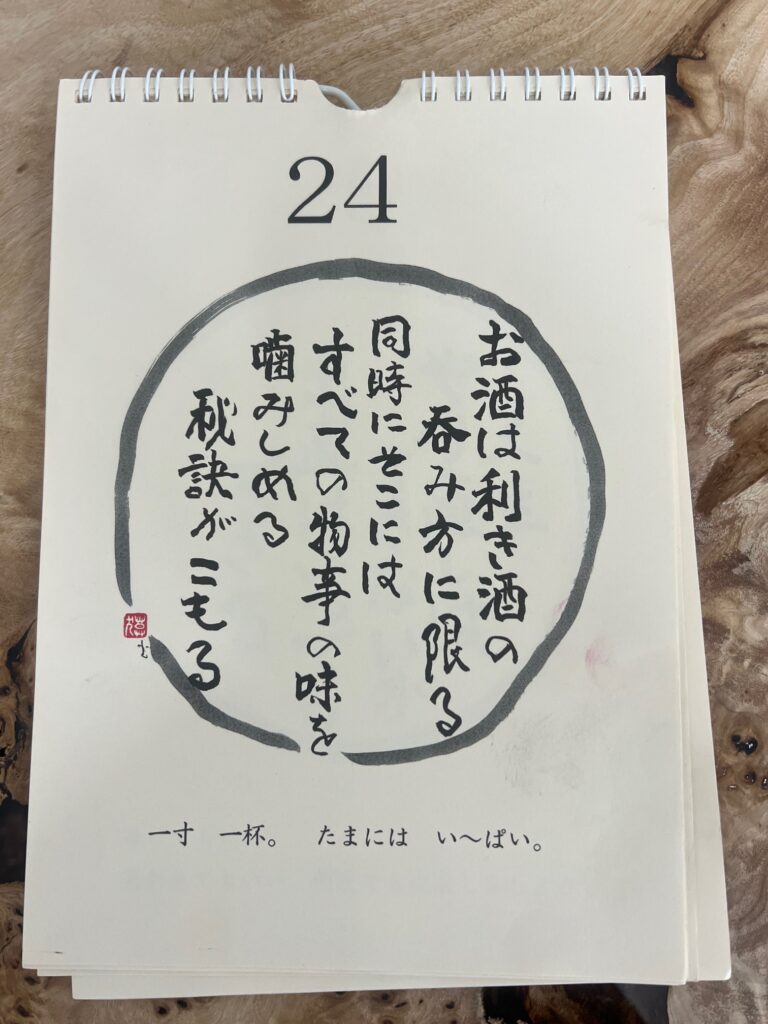 24
お酒は利き酒の
呑み方に限る
同時にそこには
すべての物事の味を
噛みしめる
秘訣がこもる
一寸　一杯。　たまには　い〜ぱい。